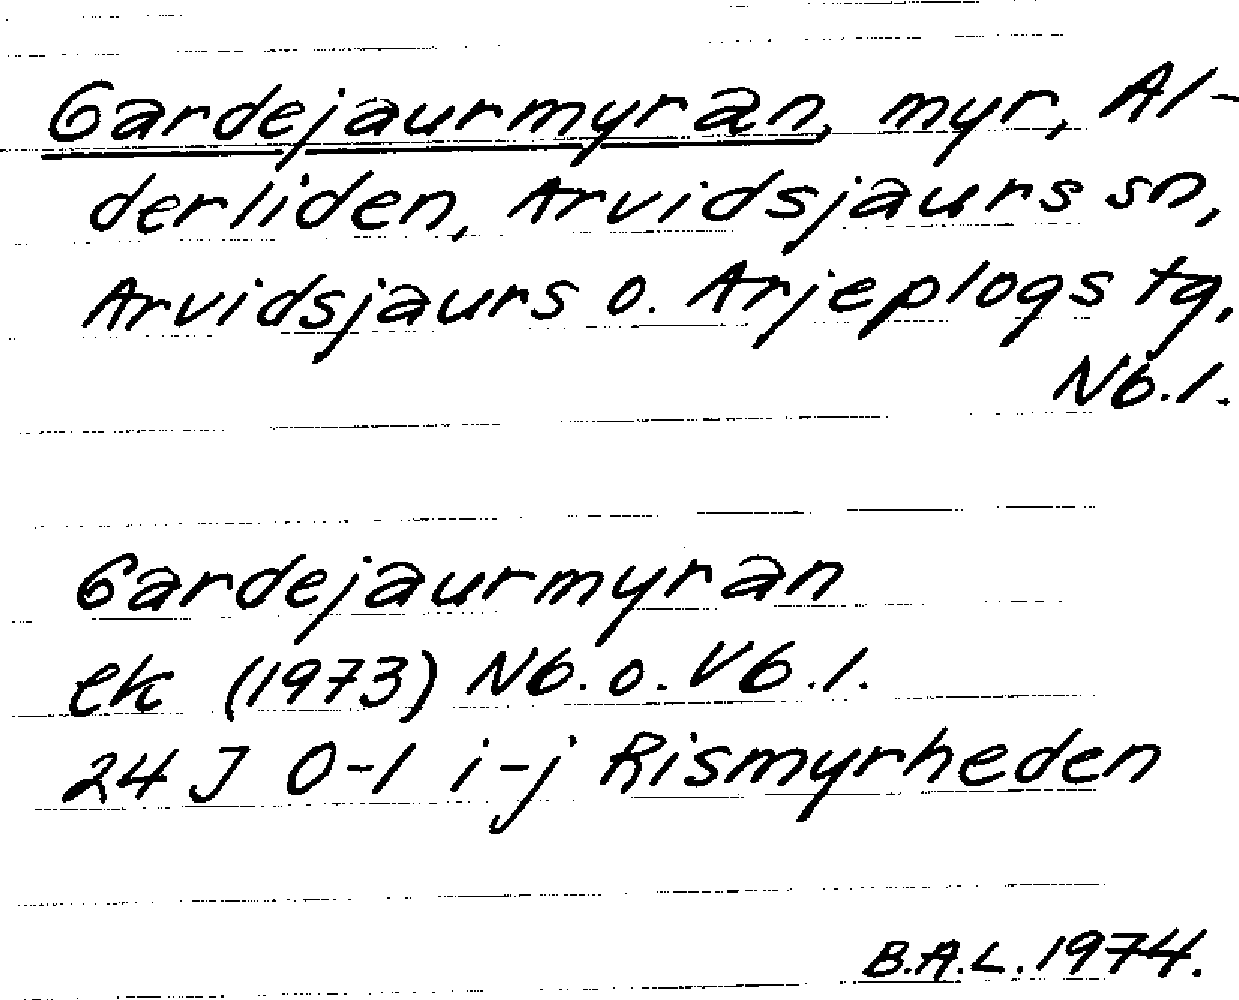 Gardejaurmyran, myr, Al-
derliden, Arvidsjaurs sn,
Arvidsjaurs o. Arjeplogs tg,
Nb.l.
Gardejaurmyran
ek (1973) Nb.o.Vb.l.
24 J 0-1 i-j Rismyrheden
B.A.L. 1974.